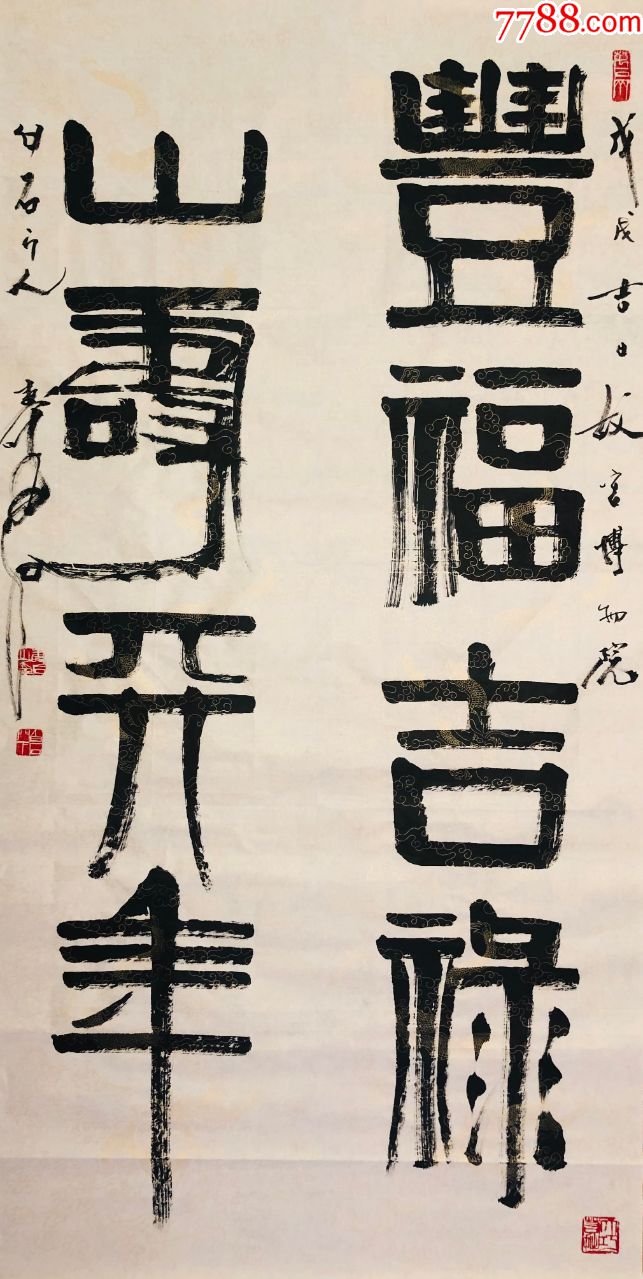 7788.com
戊戌吉日故宫博物院
豐福吉祿
山壽开年
白石门人